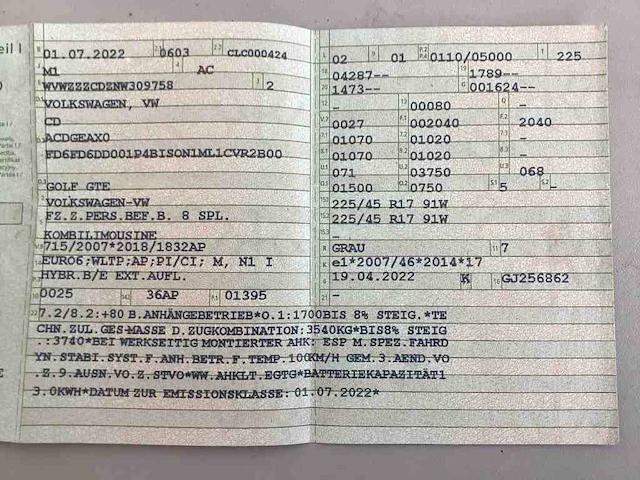 eil I
01.07.2022 0603 CLC000424
M1 AC
WVWZZZCDZNW309758 2
VOLKSWAGEN, VW
CD
ACDGEAX0
FD6FD6DD001P4BISON1ML1CVR2B00
GOLF GTE
VOLKSWAGEN-VW
FZ.Z.PERS.BEF.B. 8 SPL.
KOMBILIMOUSINE
715/2007*2018/1832AP
EURO6;WLTP;AP;PI/CI; M, N1 I
HYBR.B/E EXT.AUFL.
0025 36AP 01395
02 01 0110/05000 225
04287-- 1789--
1473-- 001624--
- 00080 -
0027 002040 2040
01070 01020 -
01070 01020 -
071 03750 068
01500 0750 5 -
225/45 R17 91W
225/45 R17 91W
-
GRAU 7
e1*2007/46*2014*17
19.04.2022 K GJ256862
-
7.2/8.2:+80 B.ANHÄNGEBETRIEB*O.1:1700BIS 8% STEIG.*TE
CHN.ZUL.GES-MASSE D.ZUGKOMBINATION:3540KG*BIS8% STEIG
.:3740*BEI WERKSEITIG MONTIERTER AHK: ESP M.SPEZ.FAHRD
YN.STABI.SYST.F.ANH.BETR.F.TEMP.100KM/H GEM.3.AEND.VO
.Z.9.AUSN.VO.Z.STVO*WW.AHKLT.EGTG*BATTERIEKAPAZITÄT1
3.0KWH*DATUM ZUR EMISSIONSKLASSE: 01.07.2022*